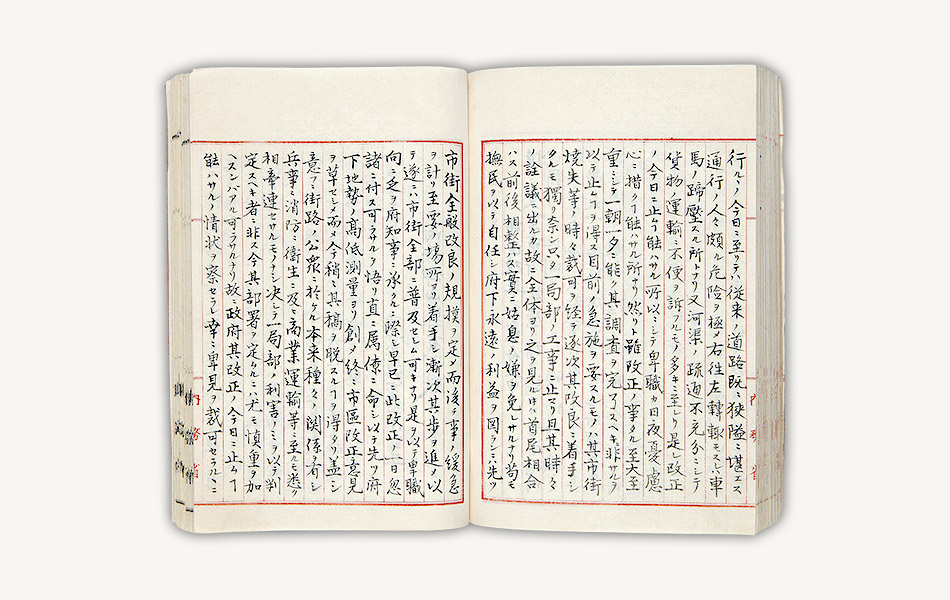 行ルヽノ今日ニ至リテハ従来ノ道路既ニ狭隘ニ堪エス
通行ノ人々頗ル危険ヲ極メ右往左轉輙モスレハ車
馬ノ蹄壓スル所トナリ又河渠ノ疏通不充分ニシテ
貨物運輸ニ不便ヲ訴フルモノ多キニ至レリ是レ改正
ノ今日ニ止ム能ハサル所以ニシテ卑職カ日夜憂慮
心ニ措クコ能ハサル所ナリ然リト雖改正ノ事タル至大至
重ニシテ一朝一夕ニ能ク其調査ヲ完了スヘキニ非サルヲ
以テ止ムヲ得ス目前ノ急施ヲ要スルモノハ其市街
焼失等ノ時々裁可ヲ経テ逐次其改良ニ着手シ
タルモ獨リ奈シ只タ一局部ノ工事ニ止マリ且其時々
ノ詮議ニ出ルカ故ニ全体ヨリ之ヲ見ルキハ首尾相合
ハス前後相整ハス實ニ姑息ノ嫌ヲ免レサルナリ苟モ
撫民ヲ以テ自任シ府下永遠ノ利益ヲ図ランニハ先ツ
市街全般改良ノ規摸ヲ定メ而後チ事ノ緩急
ヲ計リ至要ノ場所ヨリ着手シ漸次其歩ヲ進メ以
テ遂ニハ市街全部ニ普及セシム可キナリ是ヲ以テ卑職
向ニ乏ヲ府知事ニ承クルニ際シ早已ニ此改正ノ一日忽
諸ニ付ス可ラサルヲ悟リ直ニ属僚ニ命シ以テ先ツ府
下地勢ノ高低測量ヨリ創メ終ニ市區改正意見
ヲ草セシメ而メ今稍ニ其稿ヲ脱スルヲ得タリ蓋シ
意フニ街路ノ公衆ニ於ケル本来種々ノ関係ヲ有シ
兵事ニ消防ニ衛生ニ及ヒ商業運輸等ニ至ルモ悉ク
相牽連セサルモノナシ決シテ一局部ノ利害ノミヲ以テ判
定スヘキ者ニ非ス今其部署ヲ定ムルニハ尤モ慎重ヲ加
ヘスンハアル可ラサルナリ故ニ政府其改正ノ今日ニ止ムコ
能ハサルノ情状ヲ察セラレ幸ニ卑見ヲ裁可セラルヽニ
内務省